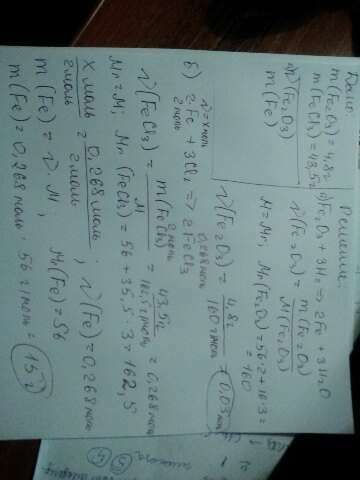 Дано:
m(Fe₂O₃) = 4,8г
m(FeCl₃) = 43,5г
ν(Fe₂O₃)
m(Fe)
Решение:
а) Fe₂O₃ + 3H₂ => 2Fe + 3H₂O
ν(Fe₂O₃) = m(Fe₂O₃) / M(Fe₂O₃)
M = Mr; Mr(Fe₂O₃) = 56·2 + 16·3 =
= 160
ν(Fe₂O₃) = 4,8г / 160 г/моль = 0,03моль
ν = x моль 0,268моль
б) 2Fe + 3Cl₂ => 2FeCl₃
2моль 2моль
ν(FeCl₃) = m(FeCl₃) / M = 43,5г / 162,5г/моль = 0,268 моль
Mr = M; Mr(FeCl₃) = 56 + 35,5 · 3 = 162,5
x моль / 2моль = 0,268моль / 2моль ; ν(Fe) = 0,268моль
m(Fe) = ν · M ; Mr(Fe) = 56
m(Fe) = 0,268 моль · 56 г/моль = 15г